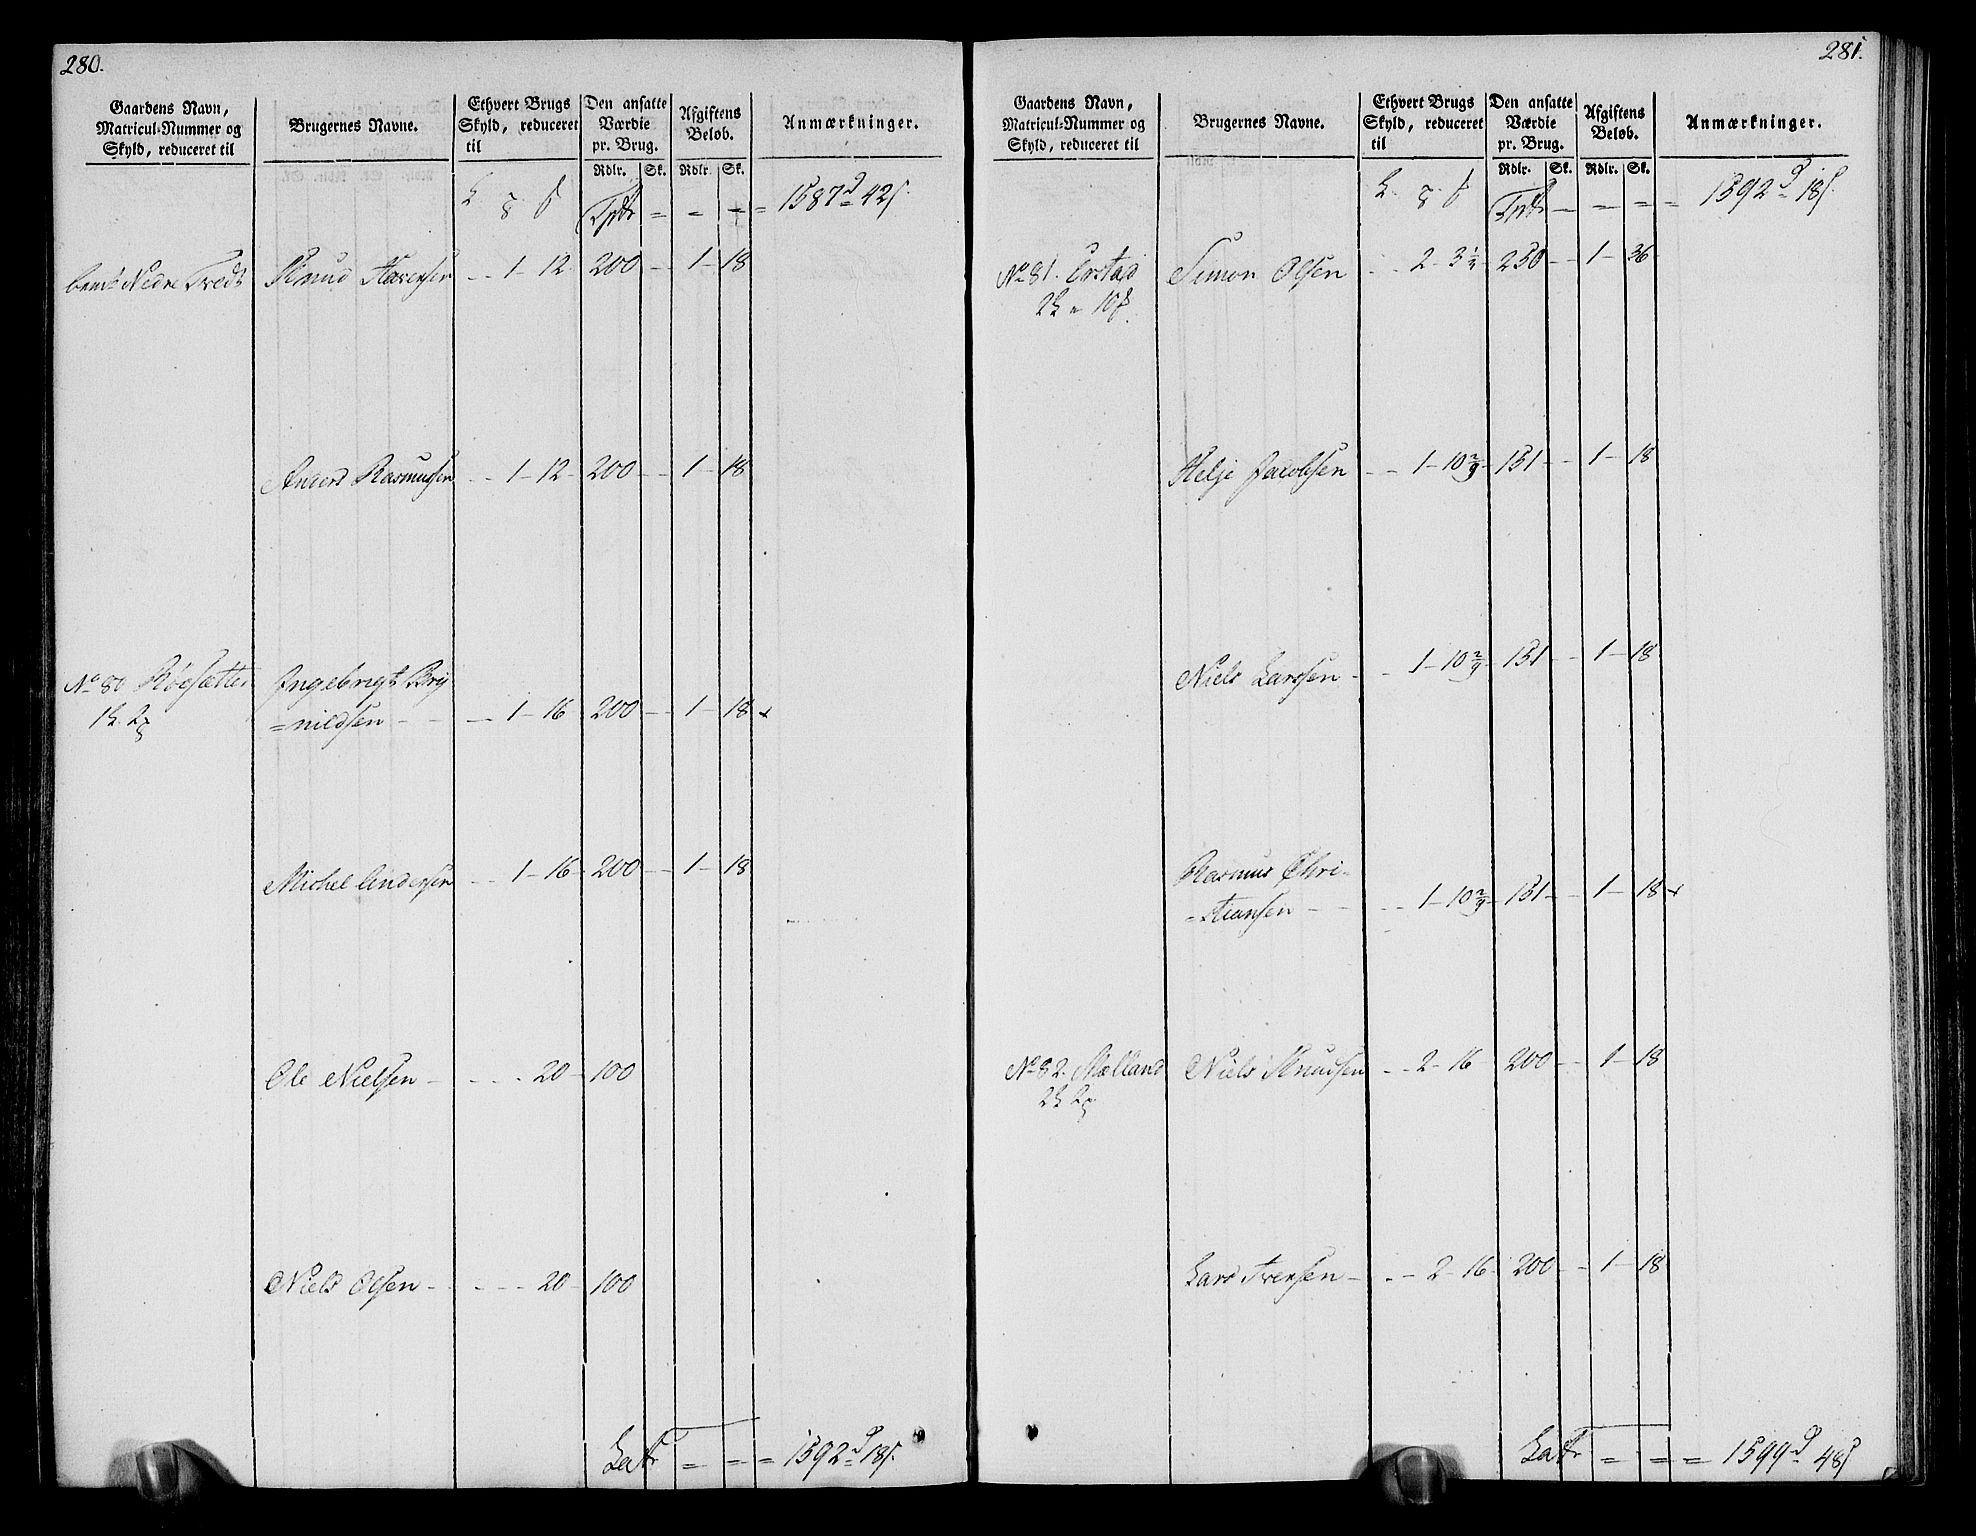 280.
Gaardens Navn, Matricul-Nummer og Skyld, reduceret til
Brugernes Navne.
Ethvert Brugs Skyld, reduceret til
Den ansatte Værdie pr. Brug.
Afgiftens Beløb.
Anmærkninger.
Rdlr. Sk. Rdlr. Sk.
Tpdr = - - = 1587 d 42 s.
Nedre Tvedt Knud Haversen - - 1 - 12 - 200 - - 1 - 18
Anders Rasmussen - - 1 - 12 - 200 - - 1 - 18
No 80 Röesætter Ingebrigt Bry
=nildsen - - - 1 - 16 - 200 - - 1 - 18
Michel Andersen - - 1 - 16 - 200 - - 1 - 18
Ole Nielsen - - - - 20 - 100
Niels Olsen - - - - 20 - 100
Latr = - = 1592 d 18 s.
281.
Gaardens Navn, Matricul-Nummer og Skyld, reduceret til
Brugernes Navne.
Ethvert Brugs Skyld, reduceret til
Den ansatte Værdie pr. Brug.
Afgiftens Beløb.
Anmærkninger.
Rdlr. Sk. Rdlr. Sk.
Tpdr - - - = 1592 d 18 s.
No 81. Erstad Simon Olsen - - 2 - 3 1/4 - 250 - - 1 - 36
Helje Jacobsen - - 1 - 10 2/9 - 151 - - 1 - 18
Niels Larssen - - 1 - 10 2/9 - 151 - - 1 - 18
Rasmus Chri-
=stiansen - - - - 1 - 10 2/9 - 151 - - 1 - 18
No 82. Mælland Niels Knudsen - - 2 - 16 200 - - 1 - 18
Lars Iversen - - - 2 - 16 - 200 - - 1 - 18
Latr = = = 1599 d 48 s